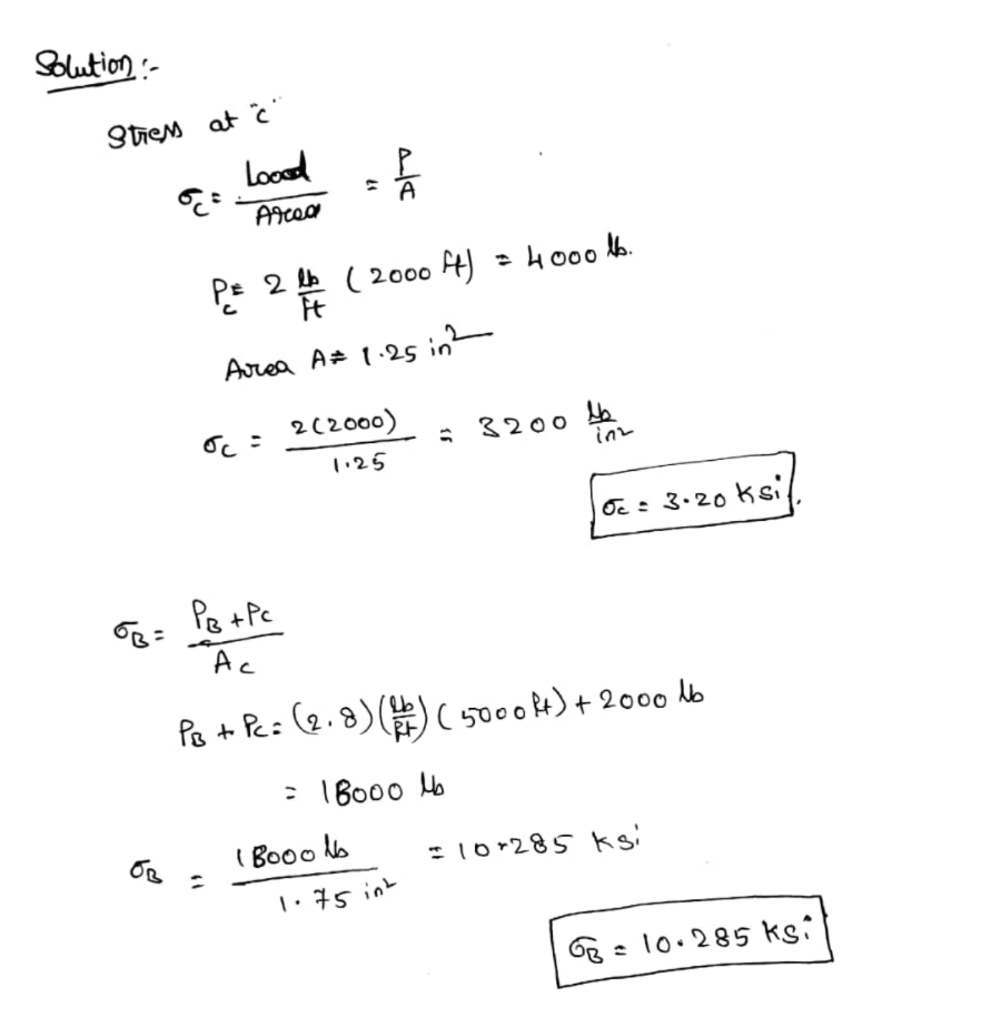 Solution :-
Stress at "c"
σc = Load / Area = P / A
Pc = 2 lb/ft (2000 ft) = 4000 lb.
Area A = 1.25 in²
σc = 2(2000) / 1.25 = 3200 lb/in²
σc = 3.20 ksi.
σB = PB + Pc / Ac
PB + Pc = (2.8)(lb/ft)(5000 ft) + 2000 lb
= 18000 lb
σB = 18000 lb / 1.75 in² = 10.285 ksi
σB = 10.285 ksi